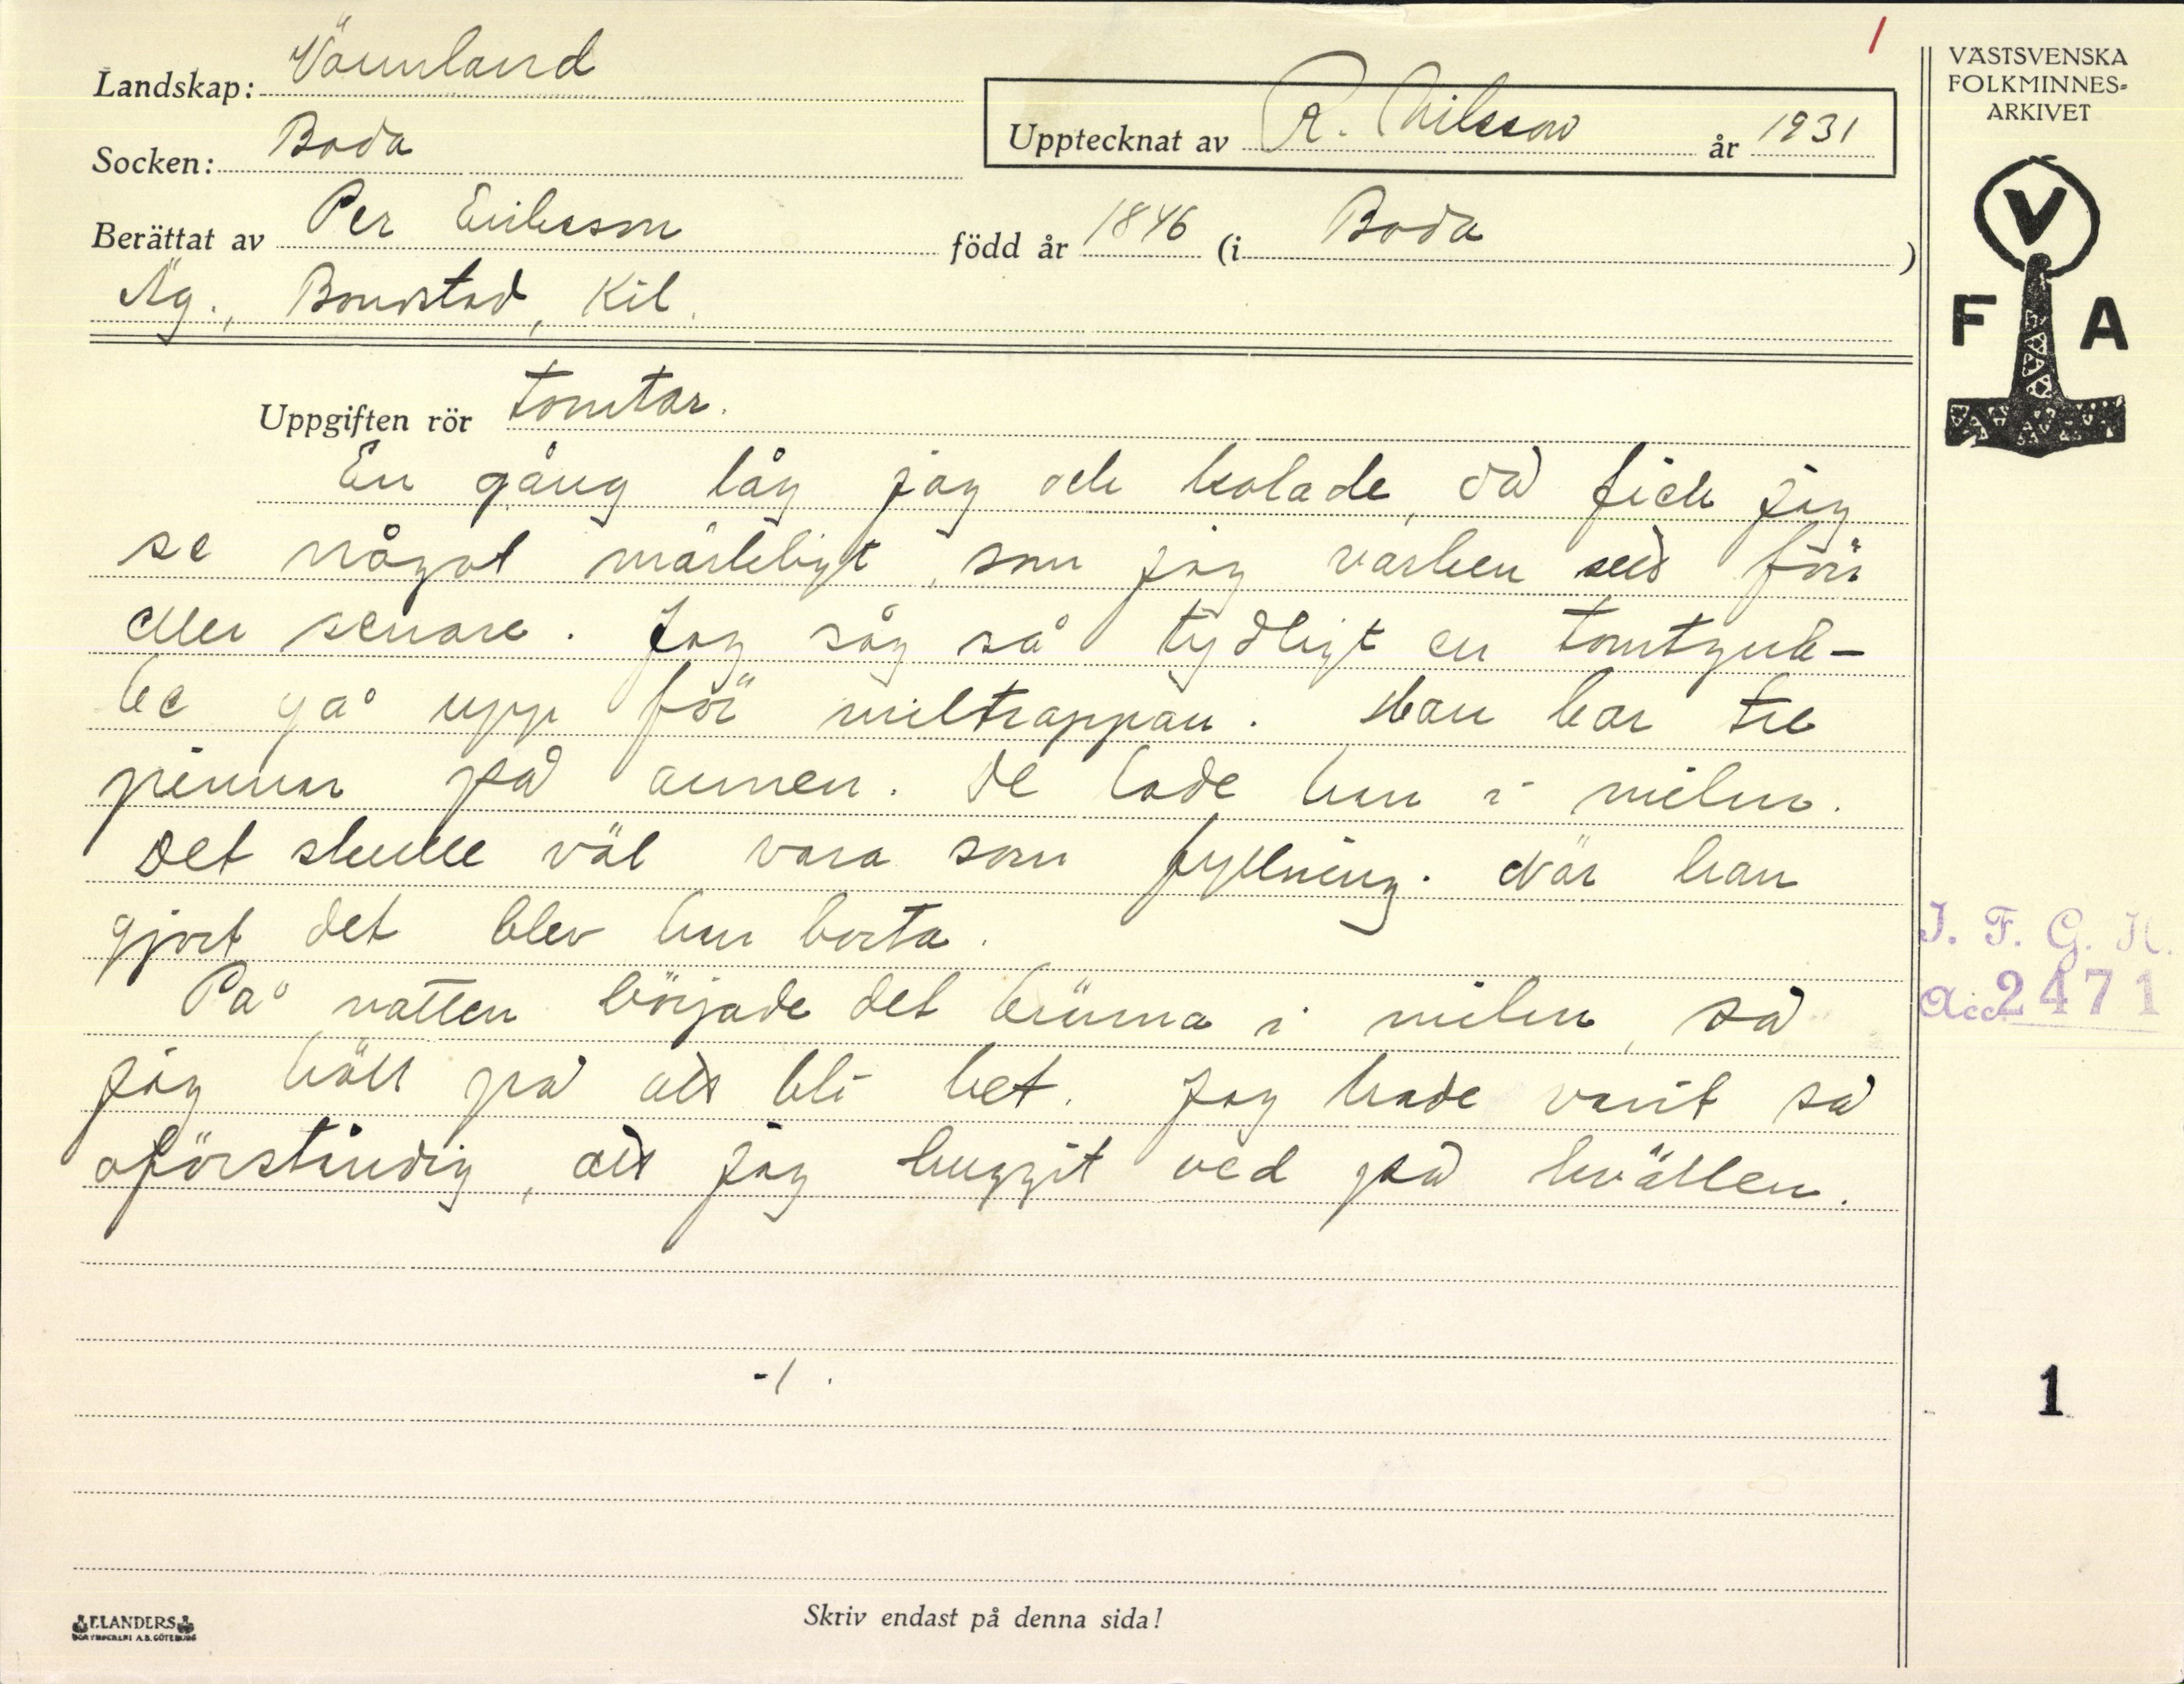 1
Landskap: Värmland
Socken: Boda
Upptecknat av R. Nilsson år 1931
Berättat av Per Eriksson född år 1846 (i Boda )
Äg., Bonstad, Kil.
VÄSTSVENSKA
FOLKMINNES-
ARKIVET
V
F A
Uppgiften rör tomtar.
En gång låg jag och kolade, då fick jag
se något märkeligt, som jag varken sett förr
eller senare. Jag såg så tydligt en tomtgub-
be gå upp för miltrappan. Han bar tre
pinnar på armen. De lade han i milan.
Det skulle väl vara som fyllning. När han
gjort det blev han borta.
På natten började det brinna i milan, så
jag höll på att bli het. Jag hade varit så
oförståndig, att jag huggit ved på kvällen.
-1.
I. F. G. H.
Acc 2471
1
ELANDERS
BOKTRYCKERI A.B. GÖTEBORG
Skriv endast på denna sida!